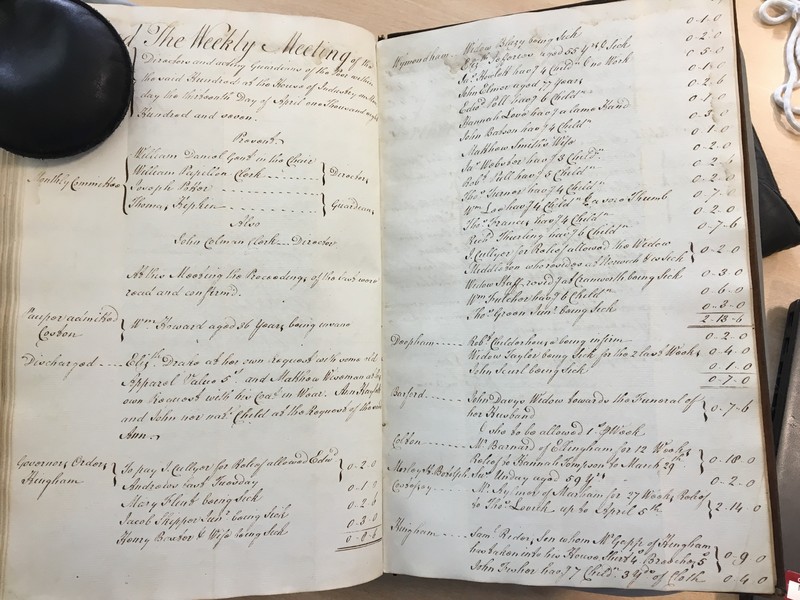 At The Weekly Meeting of the
Directors and acting Guardians of the Poor within
the said Hundred at the House of Industry on Mon
day the thirteenth Day of April one Thousand eight
Hundred and seven.
Present
William Daniel Gent in his Chair
William Papillon Clerk
Joseph Parker
Thomas Kephen
Monthly Committee
Directors
Guardians
Also
John Colman Clerk Director
At this Meeting the Proceedings of the last were
read and confirmd.
Pauper admitted
Coston
Wm. Howard aged 36 Years being insane
Discharged Elizth. Drake at her own Request with some old
Apparel Value 5s. and Matthew Wiseman at his
own Request with his Coat in Wear. Ann
and John her natl. Child at the Request of the said
Ann.
Governors Orders
Hingham
To pay J Cullyer for Relief allowed Edwd.
Andrews last Tuesday 0-2-0
Mary Flint being Sick 0-1-
Jacob Skipper Junr. being Sick 0-2-6
Henry Baxter & Wife being Sick 0-3-0
0-8-6
Wymondham Widow Bilzey being Sick 0-1-0
aged 55 Yrs. & Sick 0-2-0
Jas. Howlett has 4 Childn. & no Work 0-5-0
John Elmer aged 77 Years
Edwd. Poll has 6 Childn. 0-2-6
Hannah Love has a lame Hand 0-1-0
John Batson has 4 Childn. 0-3-0
Matthew Smiths Wife 0-1-0
Jas. Webster has 5 Childn. 0-2-0
Robt. Pell has 5 Childn.
Thos. Turner has 4 Childn. 0-2-0
Wm. Loo has 4 Childn. & a sore Thumb 0-7-0
Thos. Francis has 4 Childn. 0-2-0
Richd. Thurling has 6 Childn. 0-7-6
J Cullyer for Relief allowed the Widow
Stiddolph who resides at Norwich & is Sick 0-2-0
Widow Staff residg. at Cranworth being Sick 0-3-0
Wm. Fulcher has 6 Childn. 0-6-0
Thos. Green Senr. being Sick 0-3-0
2-18-6
Deopham Robt. Childerhouse being infirm 0-2-0
Widow Taylor being Sick for the 2 last Weeks 0-4-0
John Searl being Sick 0-1-0
0-7-0
Barford John Davys Widow towards the Funeral of
her Husband 0-7-6
& she to be allowed 1s. P Week
Colton Mr. Barnard of Ellingham for 12 Weeks
Relief to Hannah Tompson to March 29th. 0-18-0
Morley St. Botolph Jas. Unday aged 59 Yrs. 0-2-0
Costessey Mr. Aylmer of Marham for 27 Weeks Relief
to Thos. Leeich up to April 5th. 2-14-0
Hingham Saml. Reders Son whom Mr. Gapp of Hingham
has taken into his House Shirt 4s. Breeches 5s. 0-9-0
John Fisher has 7 Childn. 3 Yds. of Cloth 0-4-0